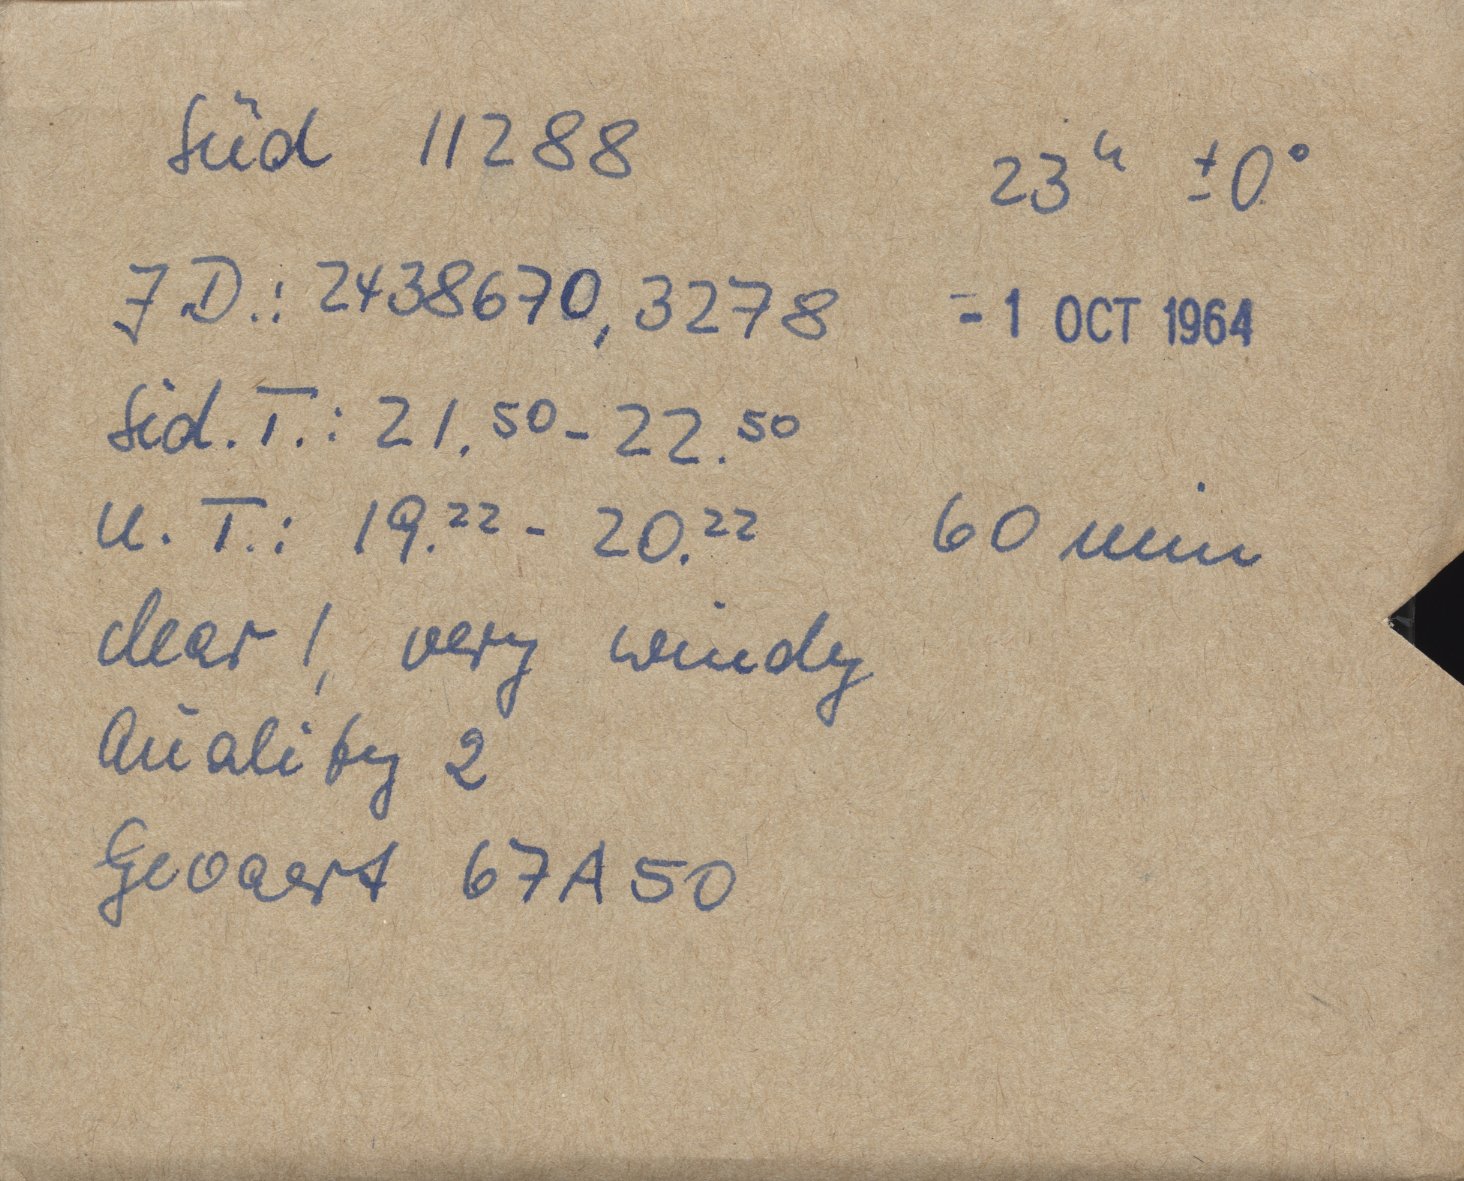 Süd 11288 23ʰ ±0°
J.D.: 2438670,3278 -1 OCT 1964
Sid. T.: 21.⁵⁰ - 22.⁵⁰
U. T.: 19.²² - 20.²² 60 min
clear!, very windy
Quality 2
Gevaert 67A50